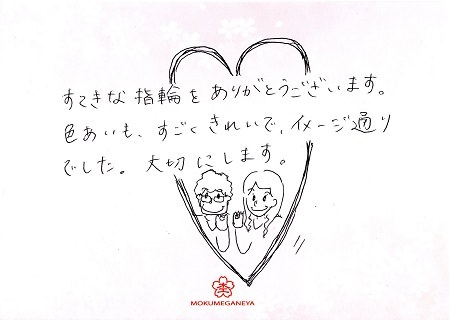 すてきな指輪をありがとうございます。
色あいも、すごくきれいで、イメージ通り
でした。大切にします。
MOKUMEGANEYA